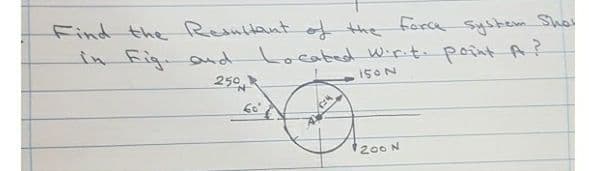 Find the Resultant of the Force system Sho
in Fig. and Located w.r.t. point A ?
250 N
150 N
60°
A
200 N